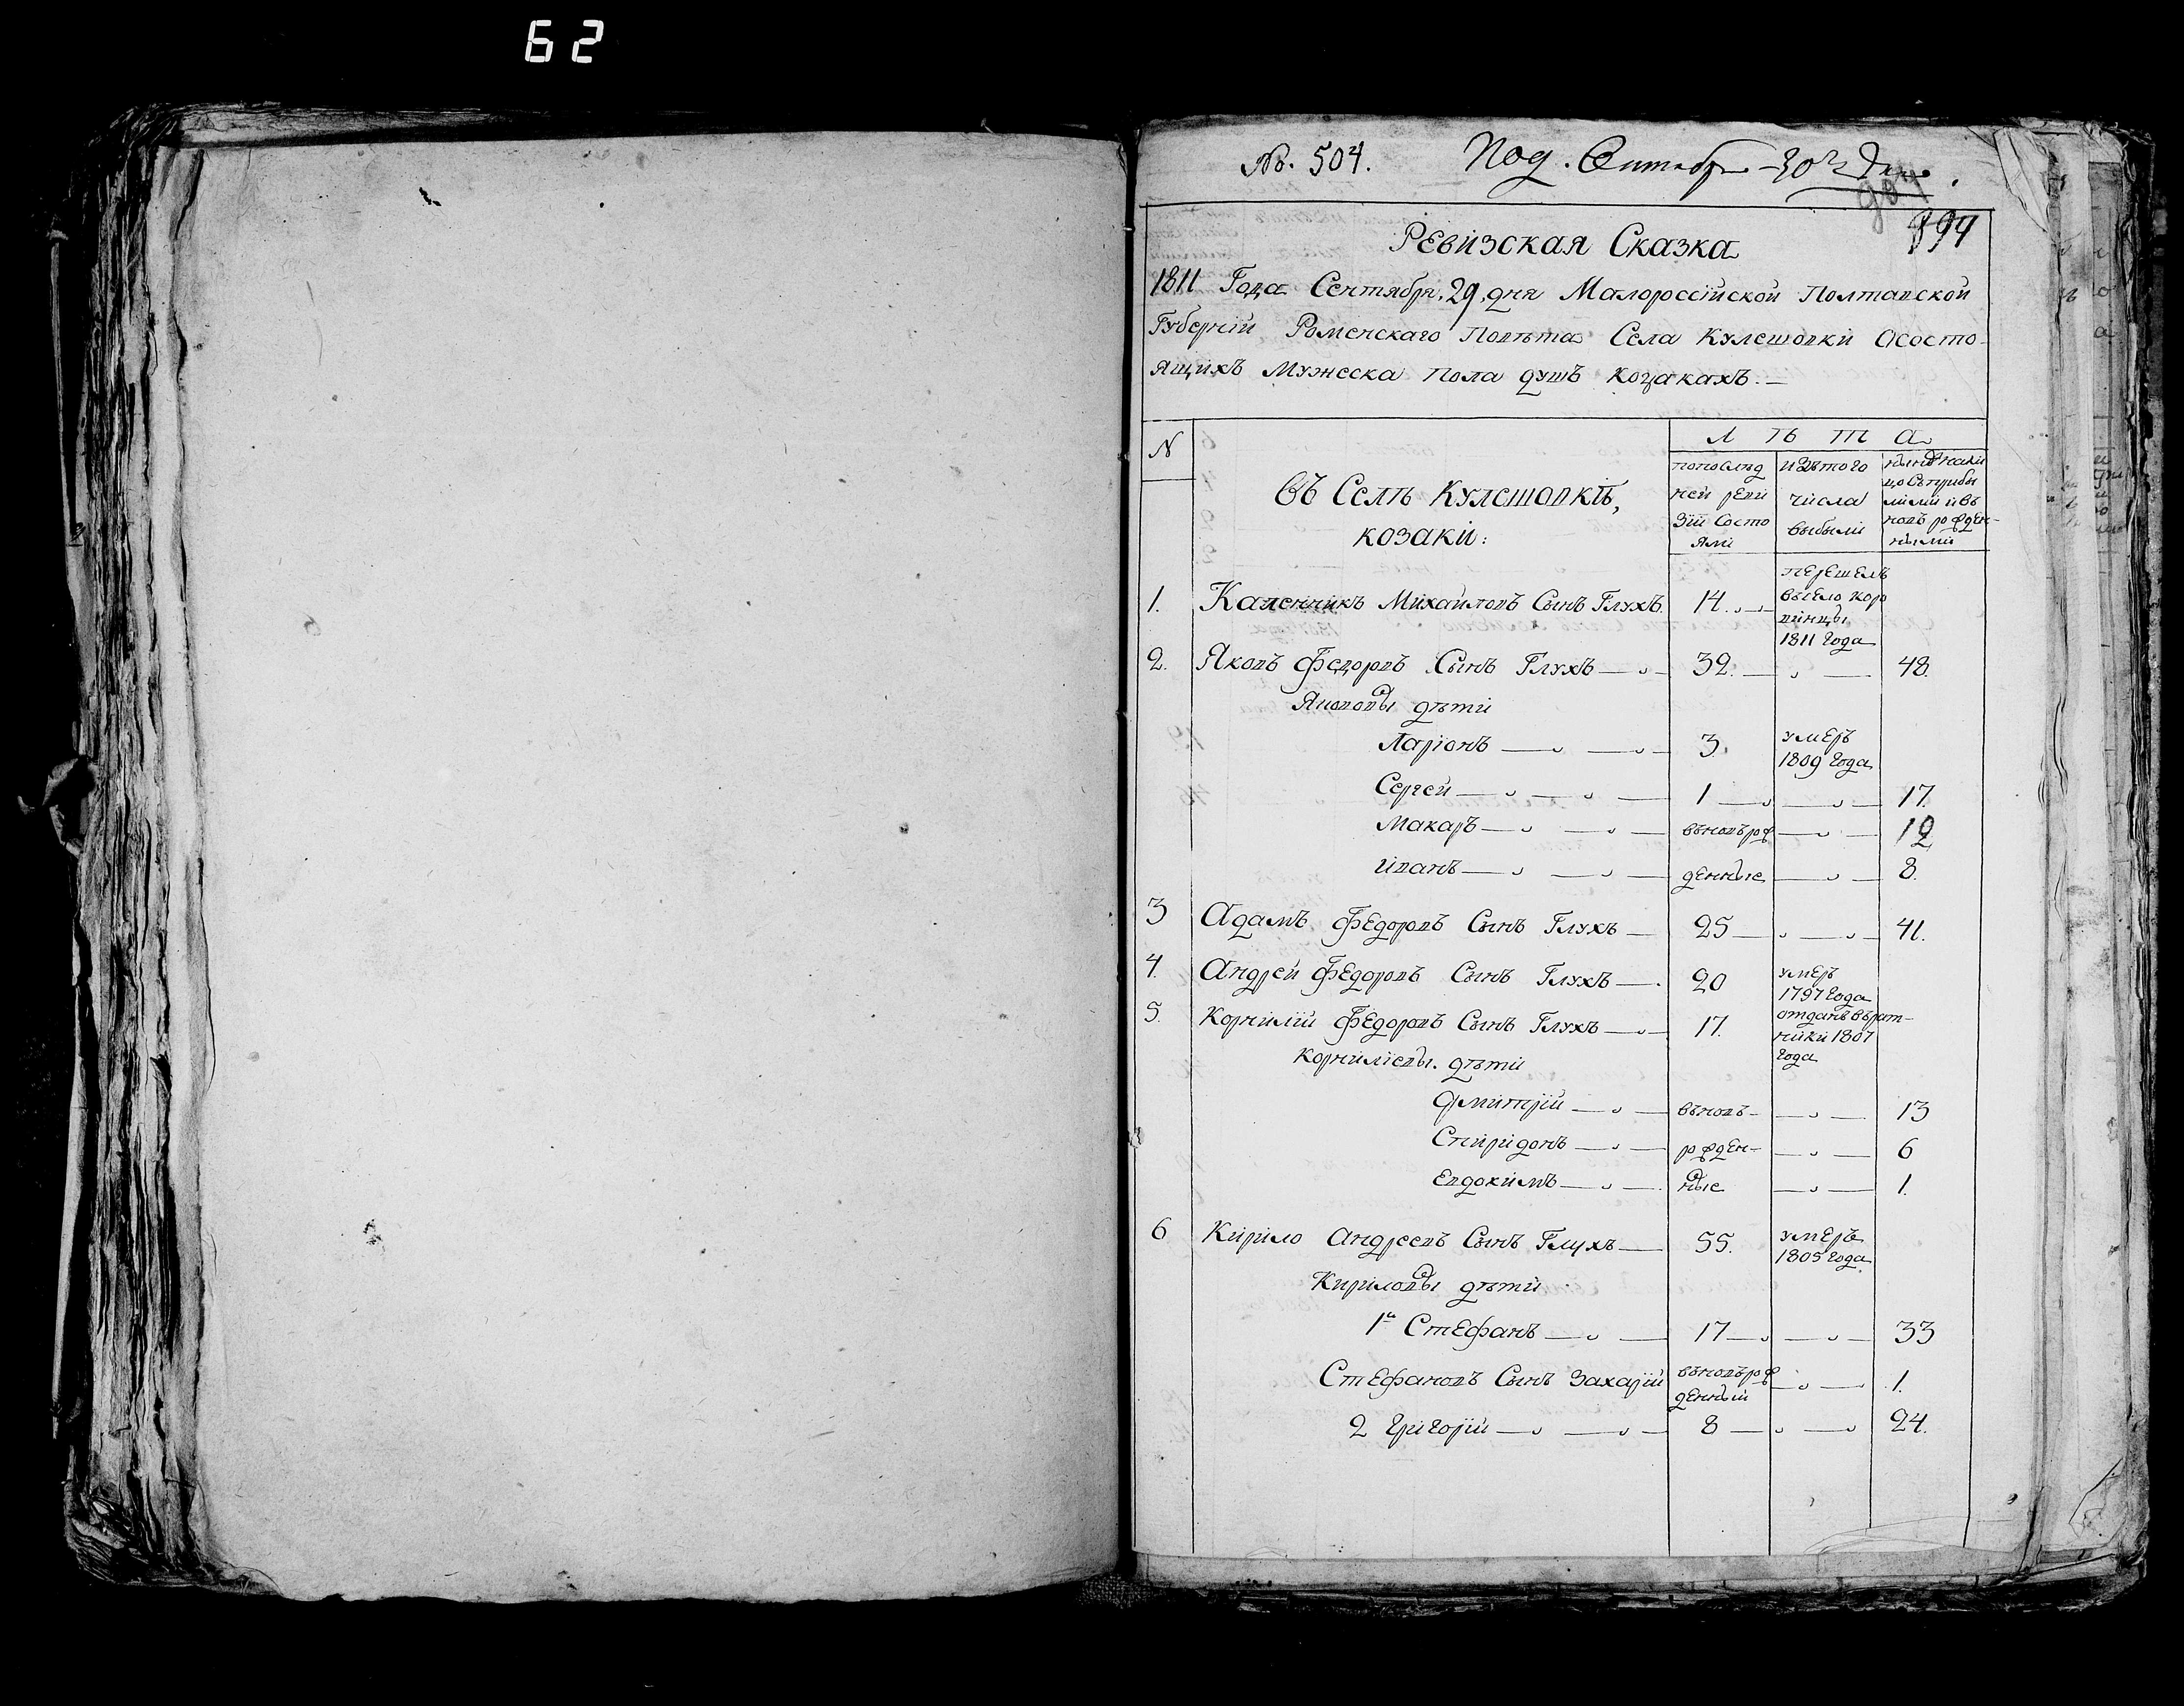 62
№. 504.
Под. Сентября 30го дня.
904
894
Ревизская Сказка
1811 Года Сентября, 29, дня Малороссїйской Полтавской
Губернїи Роменскаго Повѣта Села Кулешовки Ососто-
ящихъ Мужеска пола душъ козакахъ.—
N
Л ѣ т а
въ Селѣ Кулешовкѣ,
козаки:
попослѣд
ней реви
зїи Состо
яли
изътого
числа
выбыли
нынѣ нали
цо Съприбы
лими и въ
новъ рожден-
ными
1. Михайловъ Сынъ Глухъ. 14.
перешелъ
въсело Коро
винцы
1811 Года
2. Яковъ Федоровъ Сынъ Глухъ 32. 48.
Яковов̾ы дѣти
Ларїонъ 3. умеръ
1809 Года
Сергей 1 17.
Макаръ вновърож 12
Иванъ денные 8.
3 Адамъ Федоровъ Сынъ Глухъ 25 41.
4. Андрей Федоровъ Сынъ Глухъ 20 умеръ
1797 Года
5. Корнилїй Федоровъ Сынъ Глухъ 17. отданъ въ рат-
ники 1807
Года
Корнилїевы. дѣти
Дмитрїй вновъ- 13
Спиридонъ рожден- 6
Евдокимъ ные 1.
6 Кирило Андреевъ Сынъ Глухъ 55. умеръ
1805 Года
Кириловы дѣти
1й Стефанъ 17 33
Стефановъ Сынъ Захарїй вновърож
денный 1.
2 Григорїй 8 24.